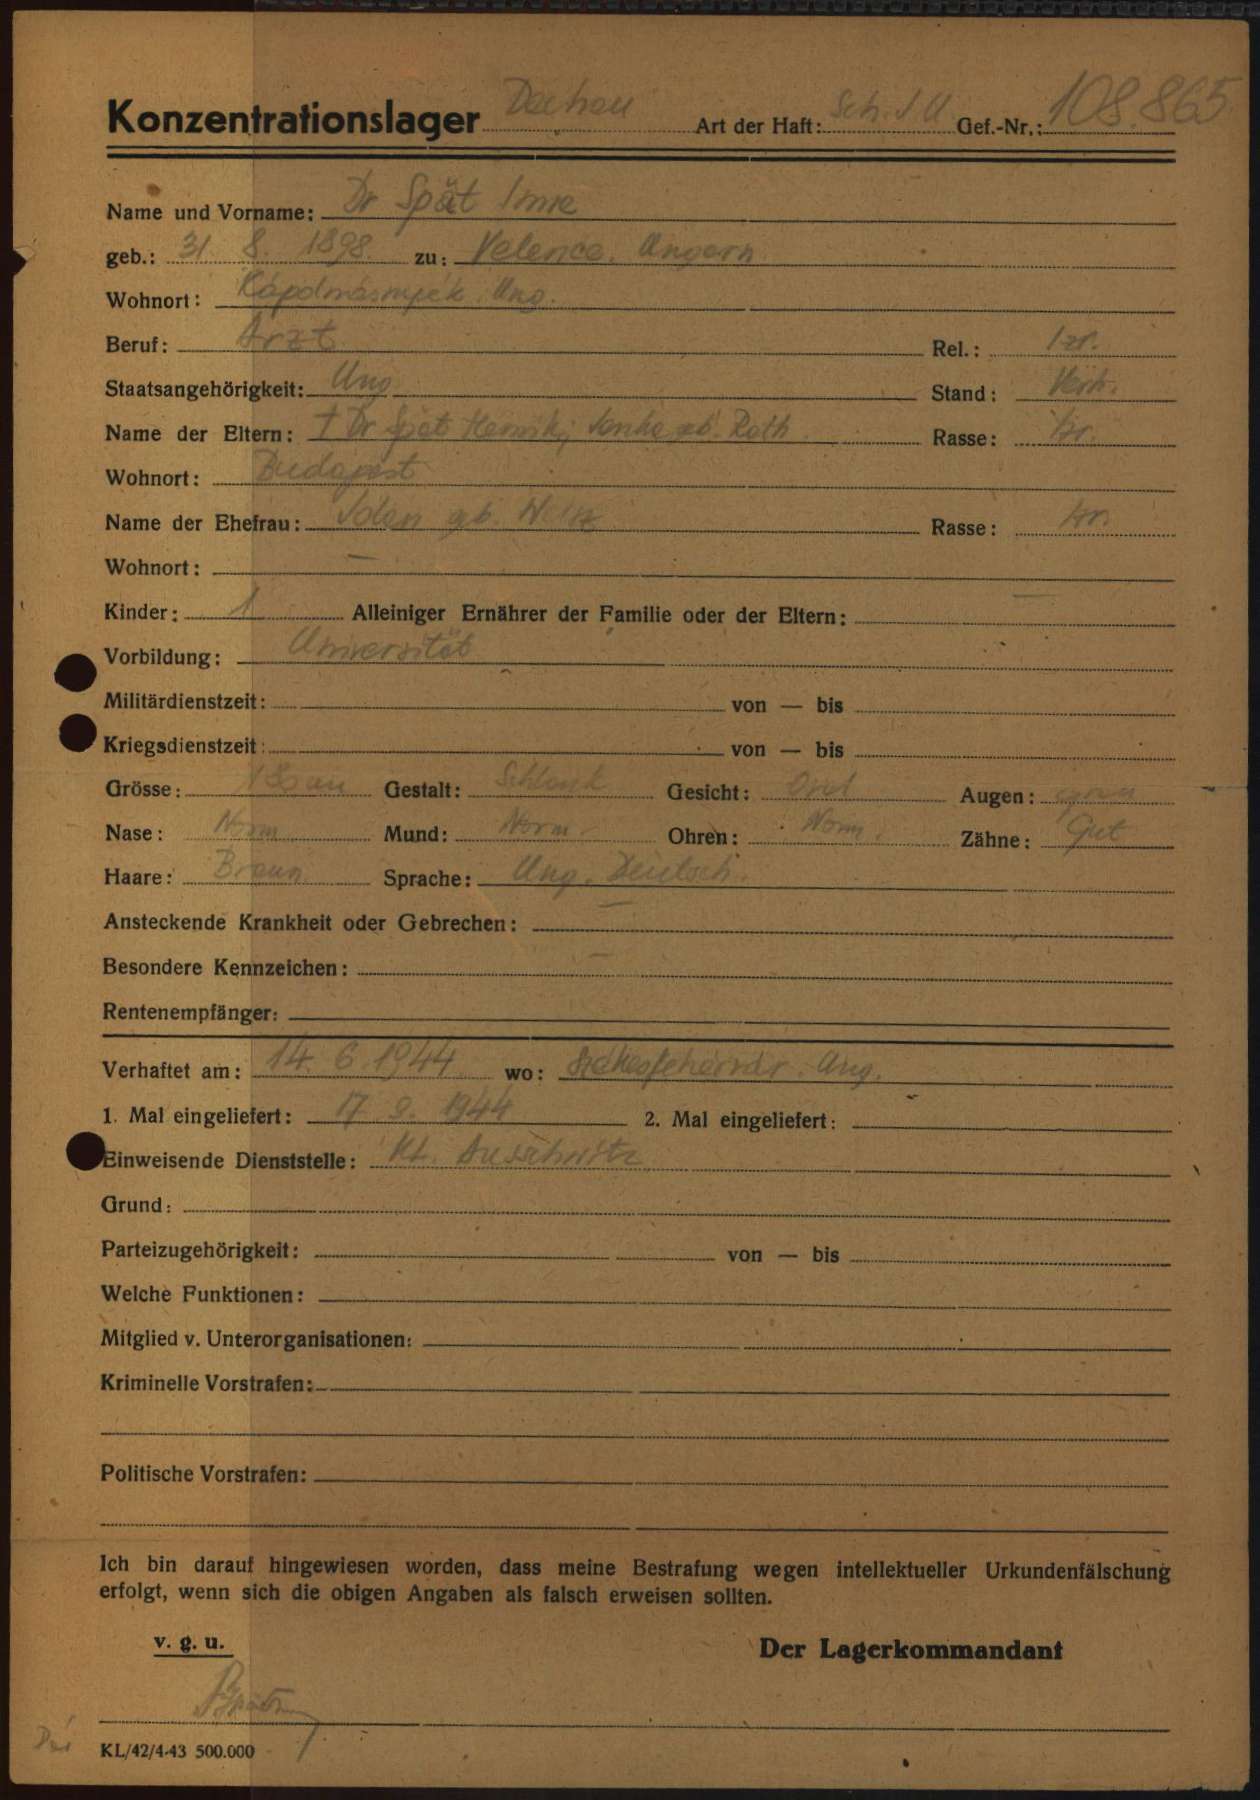 Konzentrationslager Dachau Art der Haft: Sch. J U Gef.-Nr.: 108.865
Name und Vorname: Dr Spät Imre
geb.: 31 8. 1898. zu: Velence. Ungarn
Wohnort: Ung.
Beruf: Arzt Rel.: Isr.
Staatsangehörigkeit: Ung. Stand: Verh.
Name der Eltern: † Dr Spät geb. Roth Rasse:
Wohnort: Budapest
Name der Ehefrau: geb. Rasse:
Wohnort: —
Kinder: 1 Alleiniger Ernährer der Familie oder der Eltern: —
Vorbildung: Universität
Militärdienstzeit: von — bis
Kriegsdienstzeit: von — bis
Grösse: cm Gestalt: Schlank Gesicht: Oval Augen:
Nase: Norm Mund: Norm. Ohren: Norm. Zähne: Gut
Haare: Braun Sprache: Ung. Deutsch.
Ansteckende Krankheit oder Gebrechen: —
Besondere Kennzeichen: —
Rentenempfänger:
Verhaftet am: 14. 6. 1944 wo: Székesfehérvár. Ung.
1. Mal eingeliefert: 1944 2. Mal eingeliefert:
Einweisende Dienststelle: Kl. Auschwitz
Grund:
Parteizugehörigkeit: von — bis
Welche Funktionen:
Mitglied v. Unterorganisationen:
Kriminelle Vorstrafen:
Politische Vorstrafen:
Ich bin darauf hingewiesen worden, dass meine Bestrafung wegen intellektueller Urkundenfälschung
erfolgt, wenn sich die obigen Angaben als falsch erweisen sollten.
v. g. u. Der Lagerkommandant
KL/42/4-43 500.000